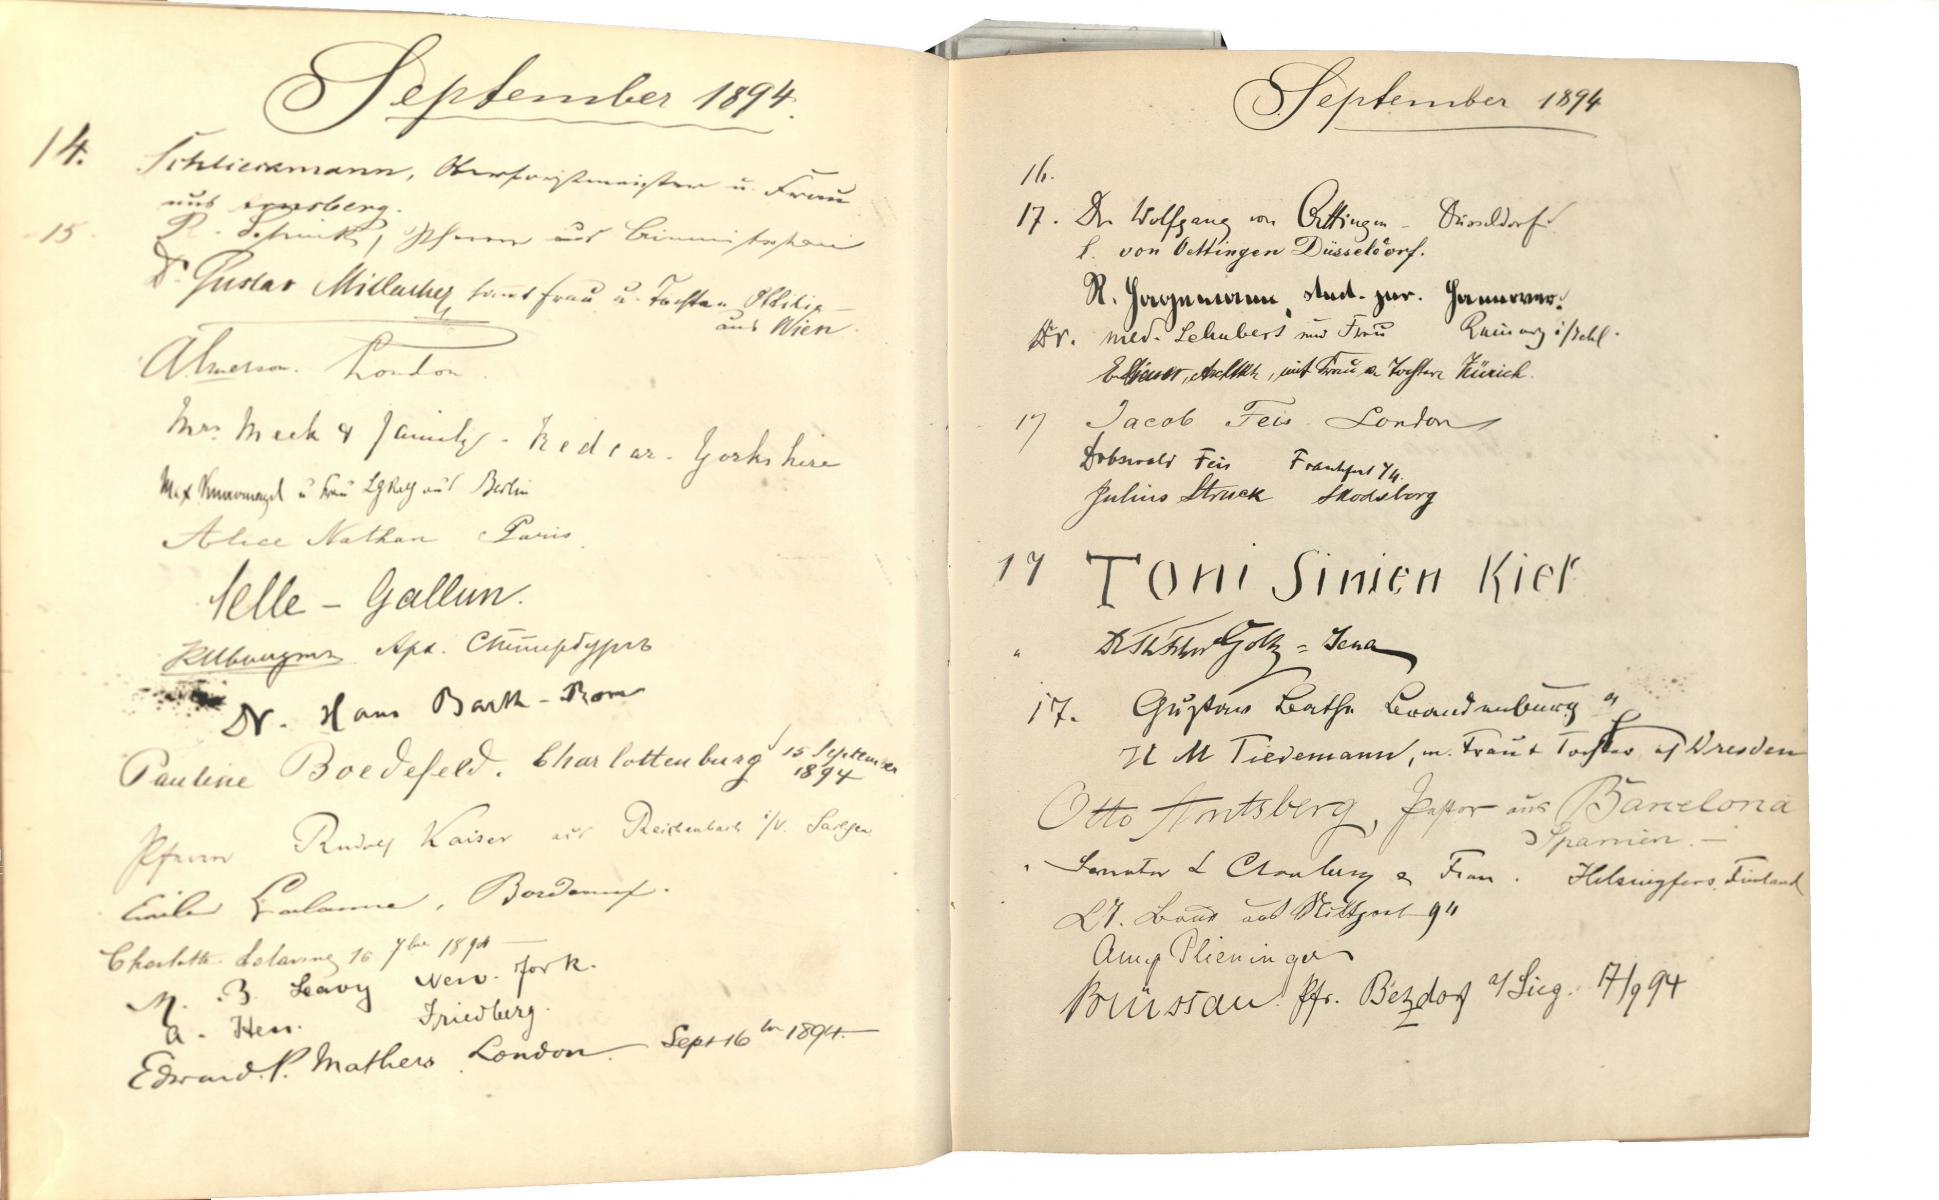 September 1894.
14. Schlieckmann, Oberforstmeister u. Frau
aus Arnsberg.
15 R. Schunk, Pfarrer aus
Dr. Gustav Millacher sammt Frau u. Tochter Ottilie
aus Wien.
London.
Mrs. Meek & family - Redcar - Yorkshire
Max u Frau aus Berlin
Alice Nathan Paris
Selle - Gallun.
Арх. С.Петербургъ
Dr. Hans Barth - Rom
Pauline Boedefeld. Charlottenburg 15 September
1894
Pfarrer Rudolf Kaiser aus Reichenbach i/V. Sachsen.
Emile Lalanne, Bordeaux.
Charlotte 16 7bre 1894
M. B. Leavy New-York.
A. Hess. Friedberg.
Edward P. Mathers. London. Sept 16th 1894.
September 1894
16.
17. Dr Wolfgang von Oettingen - Düsseldorf.
l. von Oettingen Düsseldorf.
R. Hagemann, stud. jur. Hannover.
Dr. med. Schubert und Frau Reinerz i/Schl.
mit Frau & Tochter Zürich.
17 Jacob Feis London
Feis Frankfurt
Julius Struck Skodsborg
17 Toni Simien Kiel
" Goltz = Jena
17. Gustav Brandenburg a/
H M Tiedemann, m. Frau & Tochter Dresden
Otto Amtsberg, Pastor aus Barcelona
Spanien. -
" Senator L & Frau. Helsingfors, Finland
aus Stuttgart
Amy Plieninger
Brüssau. Pfr. Betzdorf a/Sieg. 17/9 94